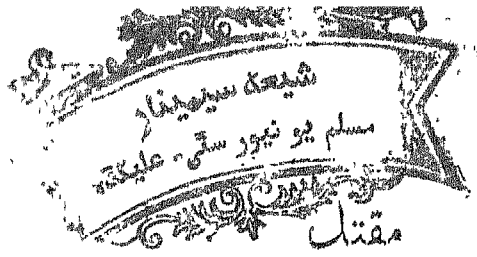 شیعہ سیمینار
مسلم یو نیور سٹی ۔ علیگڑھ
مقتل